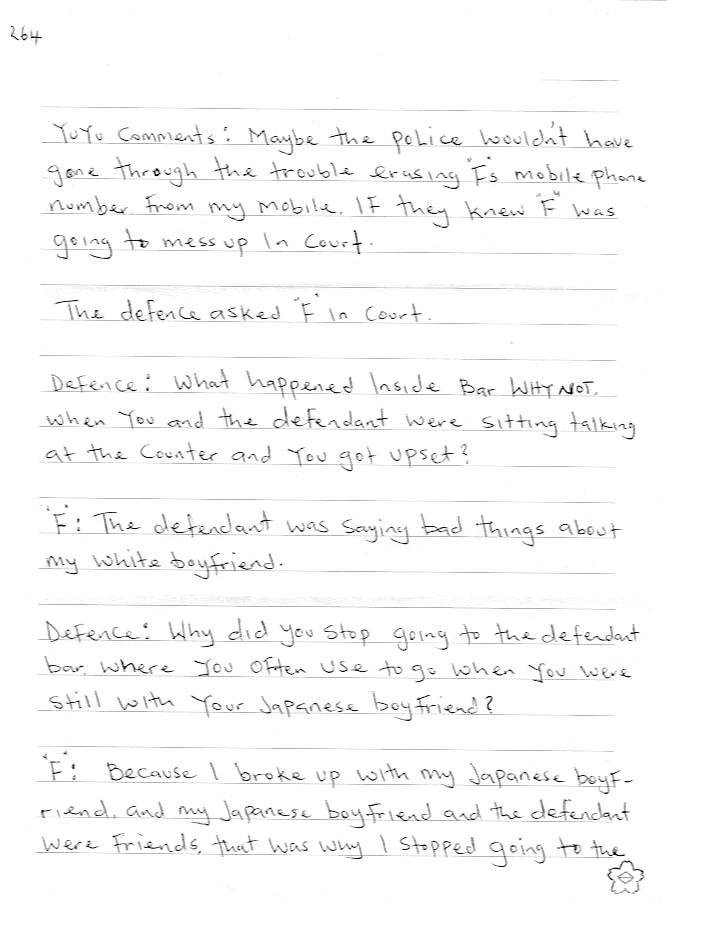 264
YuYu Comments: Maybe the police wouldn't have
gone through the trouble erasing "F"s mobile phone
number from my mobile. IF they knew "F" was
going to mess up In Court.
The defence asked "F" In Court.
Defence: What happened Inside Bar WHY NOT.
when You and the defendant were sitting talking
at the Counter and You got upset?
"F": The defendant was saying bad things about
my white boyfriend.
Defence: Why did you stop going to the defendant
bar, where You often use to go when You were
still with Your Japanese boyfriend?
"F": Because I broke up with my Japanese boyf-
riend, and my Japanese boyfriend and the defendant
were friends, that was why I stopped going to the